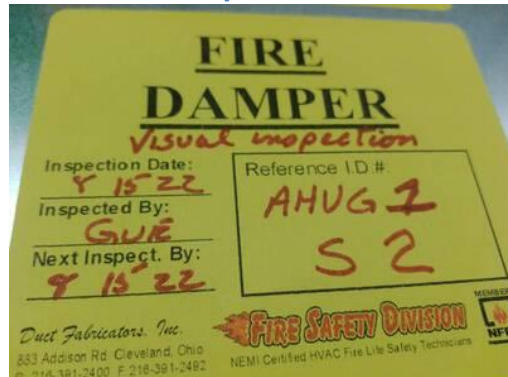 FIRE
DAMPER
Visual inspection
Inspection Date:
8 15 22
Inspected By:
GUE
Next Inspect. By:
8 15 22
Reference I.D.#:
AHUG 1
S 2
Duct Fabricators, Inc.
883 Addison Rd. Cleveland, Ohio
P. 216-391-2400 F 216-391-2492
FIRE SAFETY DIVISION
NEMI Certified HVAC Fire Life Safety Technicians
MEMBER